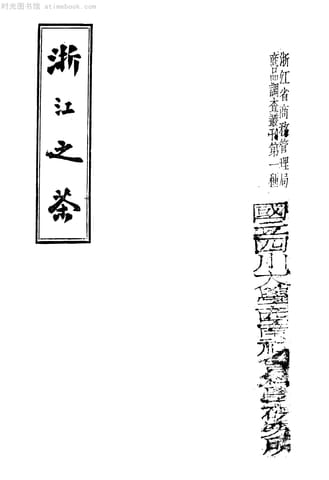 时光图书馆 @ atimebook.com
浙江省商務管理局
商品調查叢刊第一種
國立四川大學西南社會
浙江之茶